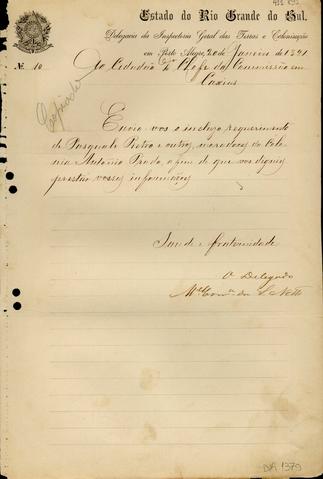 Estado do Rio Grande do Sul.
Delegacia da Inspectoria Geral das Terras e Colonisação
em Porto Alegre, 20 de Janeiro de 1891
Nº 10
Ao Cidadão Chefe da Commissão em
Caxias
Copiado
Envio-vos o incluso requerimento
de Pasquale Pietro e outros, moradores da Colo
nia Antonio Prado, a fim de que vos digneis
prestar vossas informações
Saude e fraternidade
O Delegado
Netto
1379